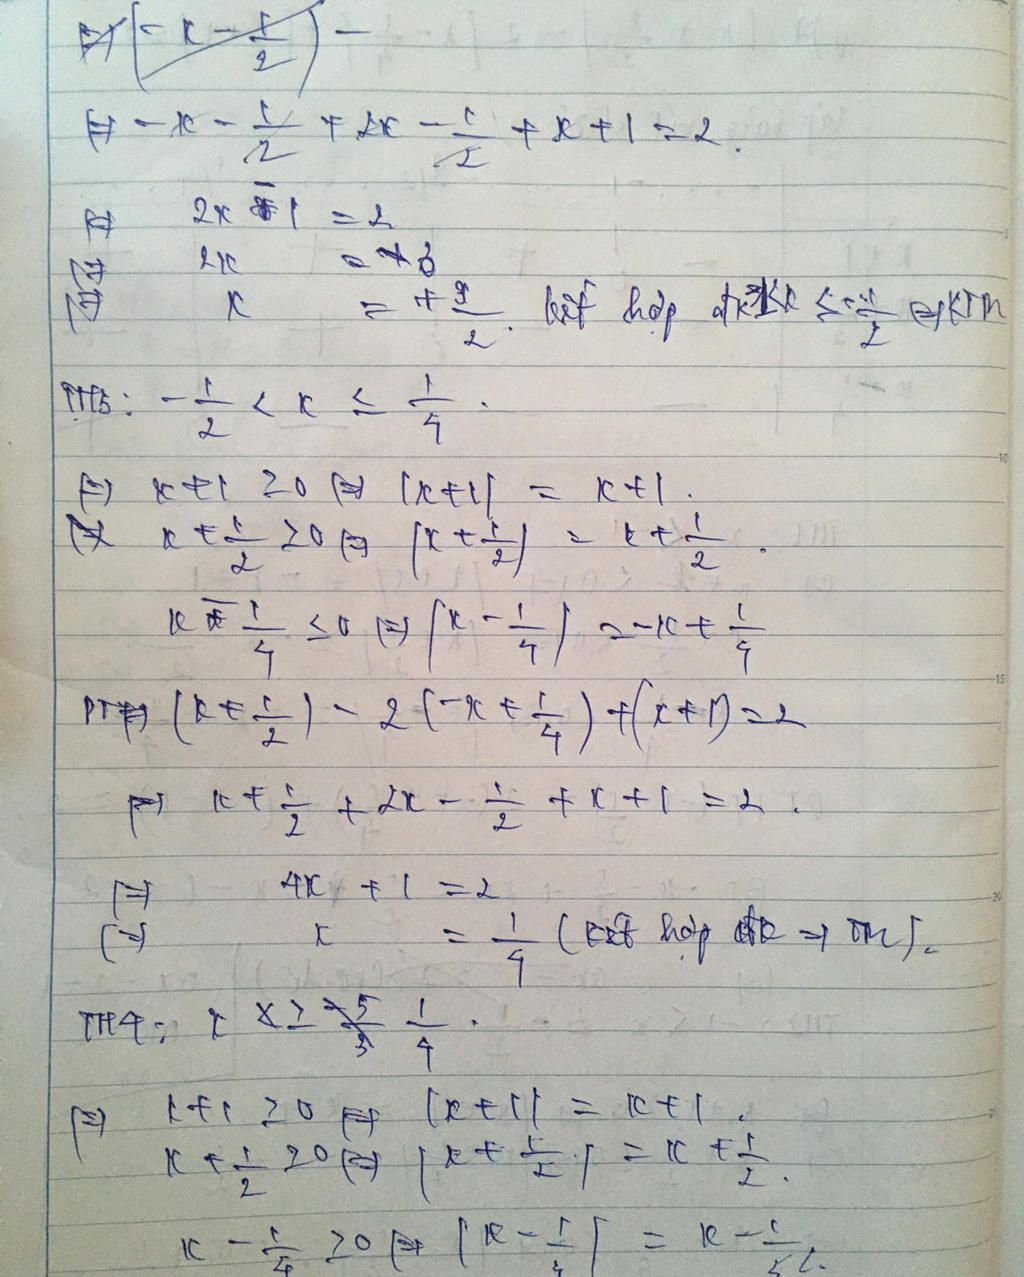 ⇔ (-x - 1/2) -
⇔ -x - 1/2 + 2x - 1/2 + x + 1 = 2.
⇔ 2x - 1 = 2
⇔ 2x = 3
⇔ x = + 3/2. kết hợp đk x ≤ -1/2 ⇒ KTM
TH3: -1/2 < x ≤ 1/4.
⇔ x+1 ≥ 0 ⇔ |x+1| = x+1.
x + 1/2 ≥ 0 ⇔ |x + 1/2| = x + 1/2.
x - 1/4 ≤ 0 ⇔ |x - 1/4| = -x + 1/4
PT ⇔ (x + 1/2) - 2(-x + 1/4) + (x+1) = 2
⇔ x + 1/2 + 2x - 1/2 + x + 1 = 2.
⇔ 4x + 1 = 2
⇔ x = 1/4 (kết hợp đk ⇒ TM).
TH4: x ≥ 1/4.
⇔ x+1 ≥ 0 ⇔ |x+1| = x+1.
x + 1/2 ≥ 0 ⇔ |x + 1/2| = x + 1/2.
x - 1/4 ≥ 0 ⇔ |x - 1/4| = x - 1/4.